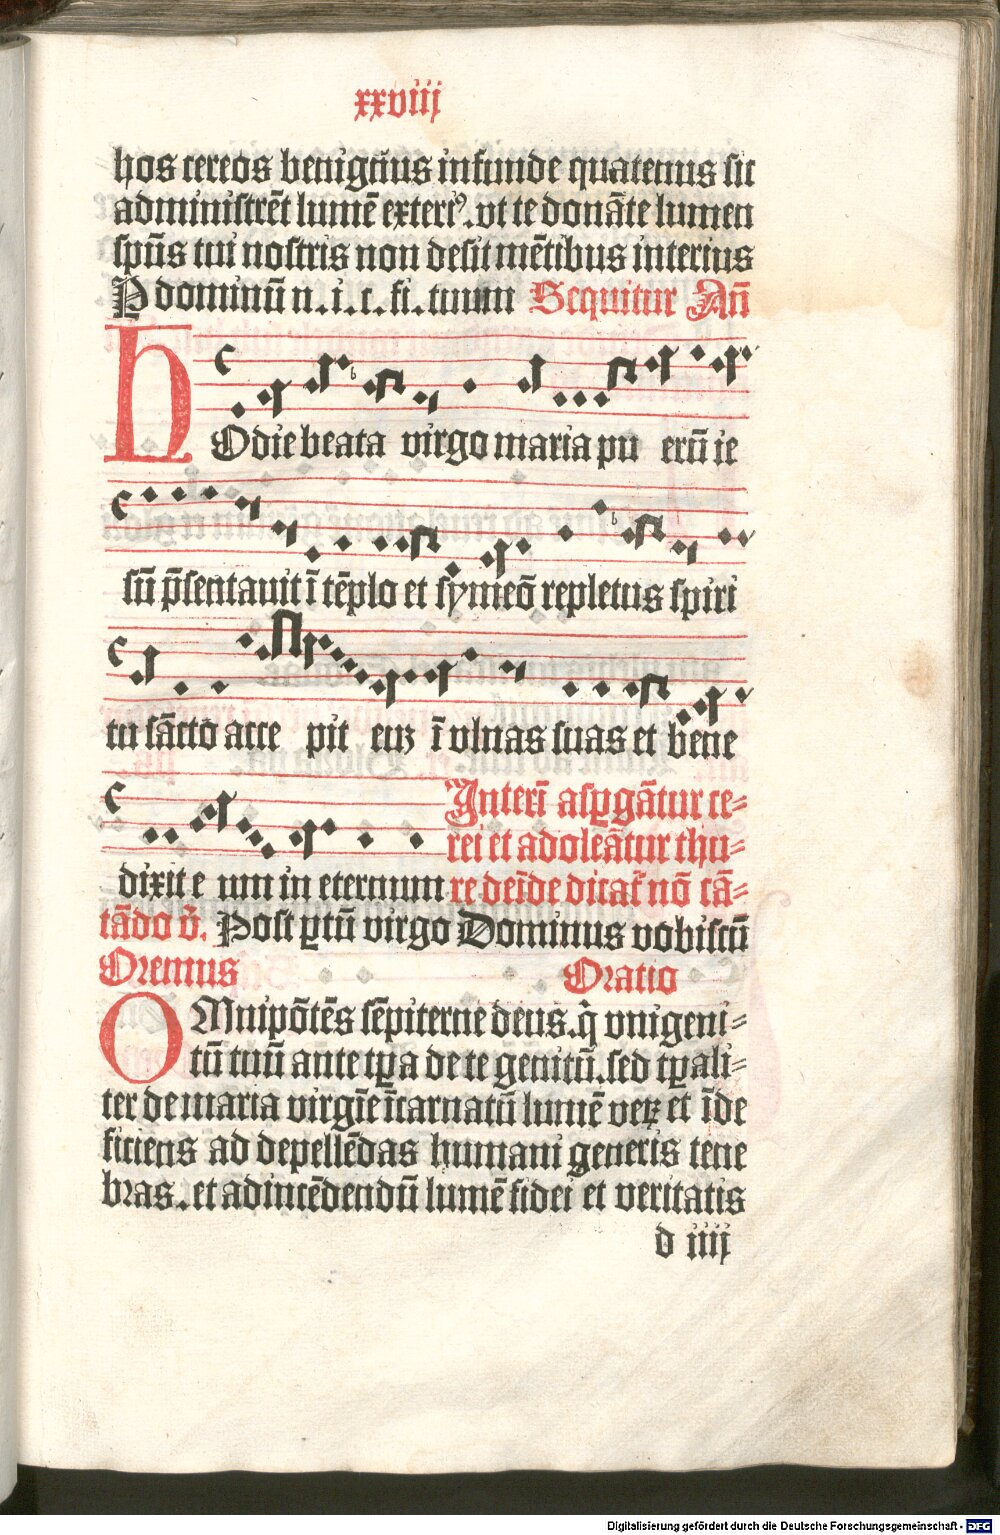 xxviij
hos cereos benigñus infunde quatenus sit
administrēt lumē exteriꝰ. vt te donāte lumen
spūs tui nostris non desit mētibus interius
P dominū n. i. c. fi. tuum Sequitur Añ
HOdie beata virgo maria pu erū ie
sū p̄sentauit ī tēplo et symeō repletus spiri
tu sācto acce pit euꝫ ī vlnas suas et bene
Interī aspgātur ce⸗
rei et adoleātur thu⸗
dixit e um in eternum re deīde dicat̄ nō cā⸗
tādo v̄. Post ꝑtū virgo Dominus vobiscū
Oremus Oratio
OMnipōtēs sēpiterne deus. q̇ vnigeni⸗
tū tuū ante tꝑa de te genitū. sed tꝑali⸗
ter de maria virgīe īcarnatū lumē veꝝ et īde
ficiens ad depellēdas humani generis tene
bras. et ad incēdendū lumē fidei et veritatis
d iiij
Digitalisierung gefördert durch die Deutsche Forschungsgemeinschaft - DFG